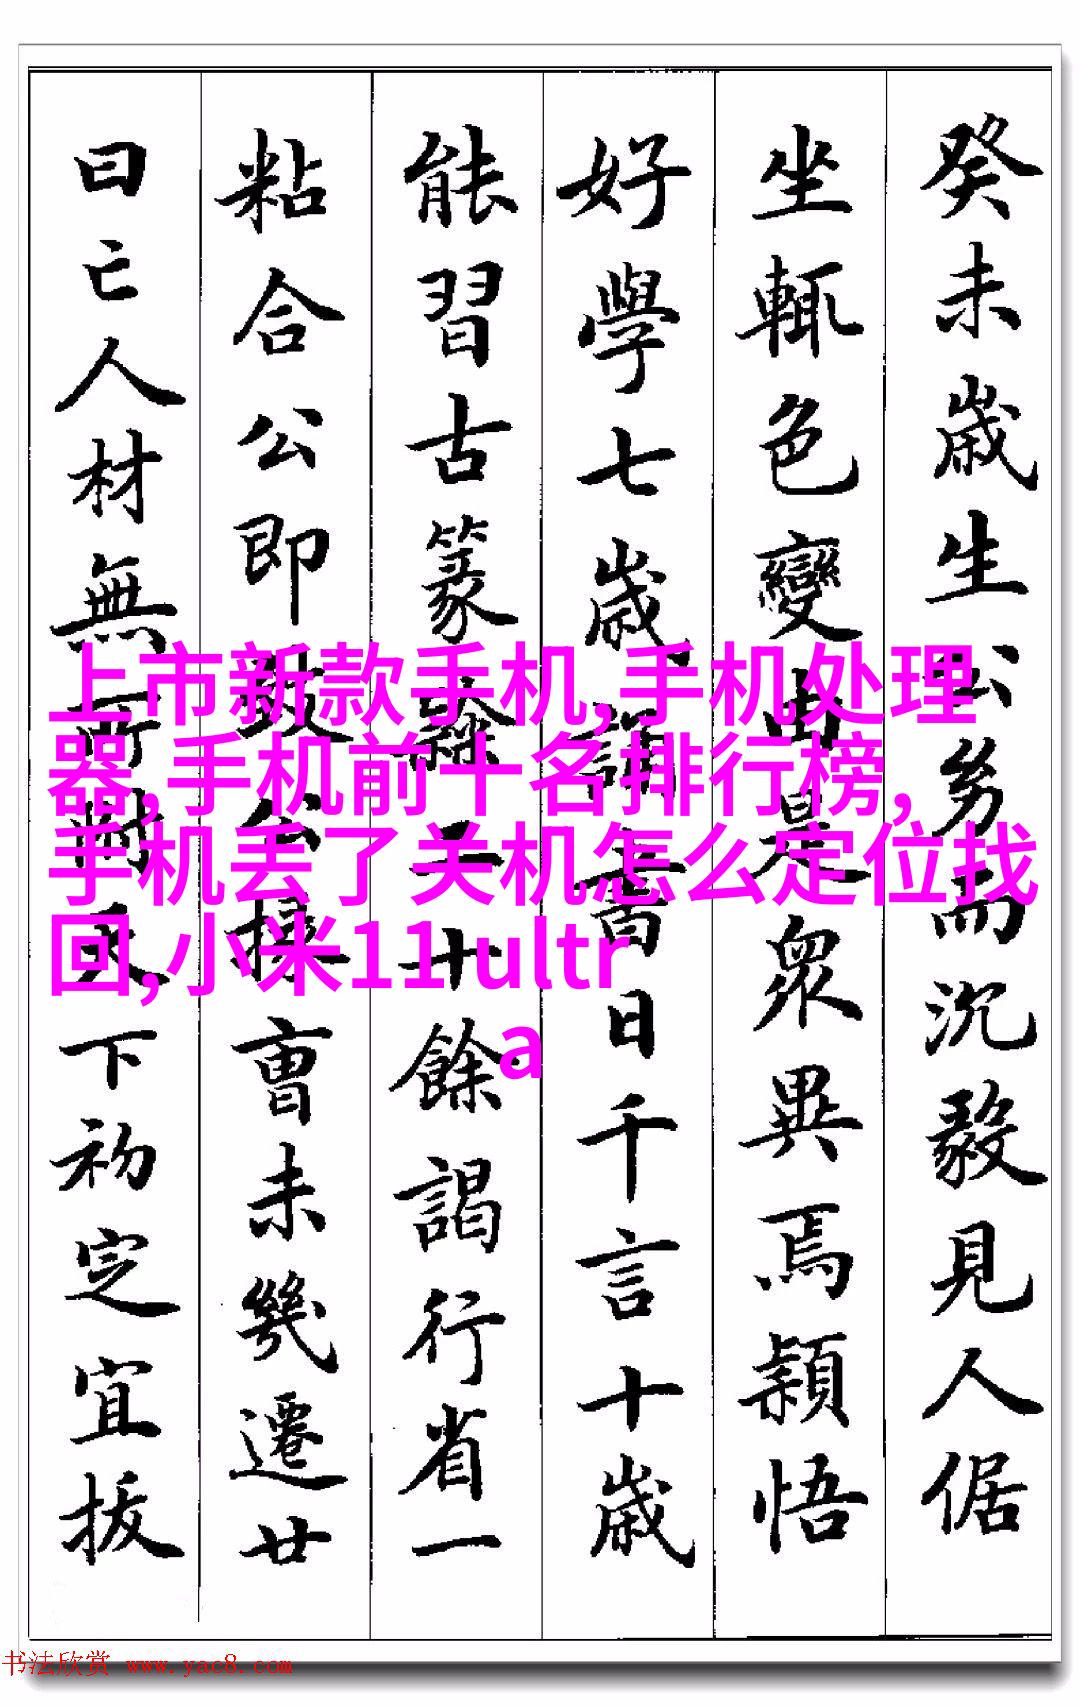 癸未歲生公幼而沉毅見人倨
坐輒色變由是眾異焉穎悟
好學七歲誦書日千言十歲
能習古篆隸二十餘謁行省一
粘合公即致公掾曹未幾遷廿
曰亡人材無所對天下初定宜拔
上市新款手机,手机处理
器,手机前十名排行榜,
手机丢了关机怎么定位找
回,小米11 ultr
a
书法欣赏 www.yac8.com